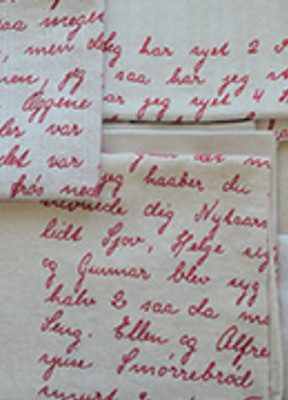 saa meget
, men
men, jeg
Oppene
ler var
det var
frós ned
dig har syet 2
saa har jeg
ar jeg syet 4
jeg haaber du
dig Nytaars
lidt Sjov, Helge
og Gunnar blev syg
halv 2 saa da
Seng. Ellen og Alfre
Smórrebród